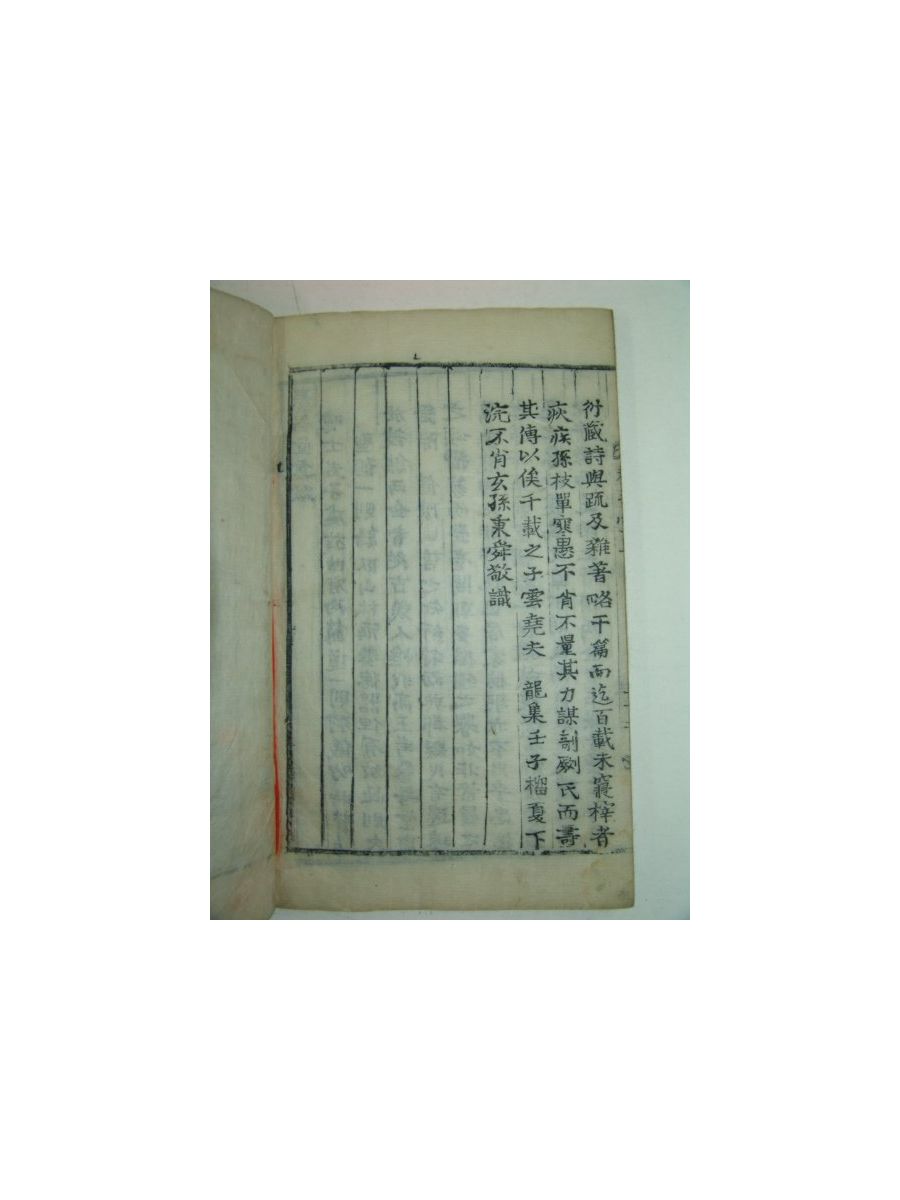 衍藏詩與疏及雜著略干篇而迄百載未寢梓者
疢疾孫枝單寒愚不肖不量其力謀剞劂氏而壽
其傳以俟千載之子雲堯夫 龍集壬子榴夏下
浣不肖玄孫秉舜敬識